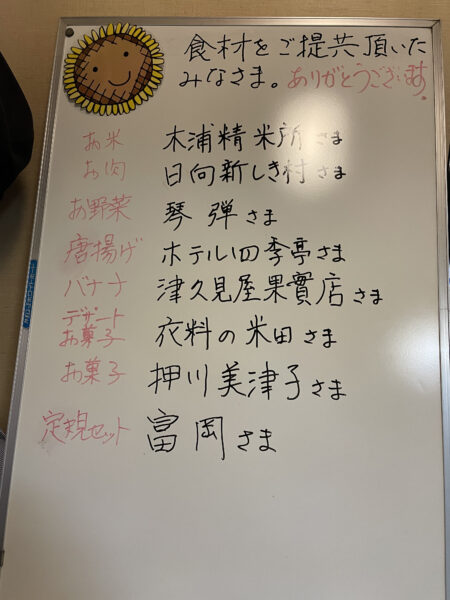 食材をご提供頂いた
みなさま。ありがとうございます!
お米 木浦精米所さま
お肉 日向新しき村さま
お野菜 琴弾さま
唐揚げ ホテル四季亭さま
バナナ 津久見屋果實店さま
デザート
お菓子 衣料の米田さま
お菓子 押川美津子さま
定規セット 富岡さま